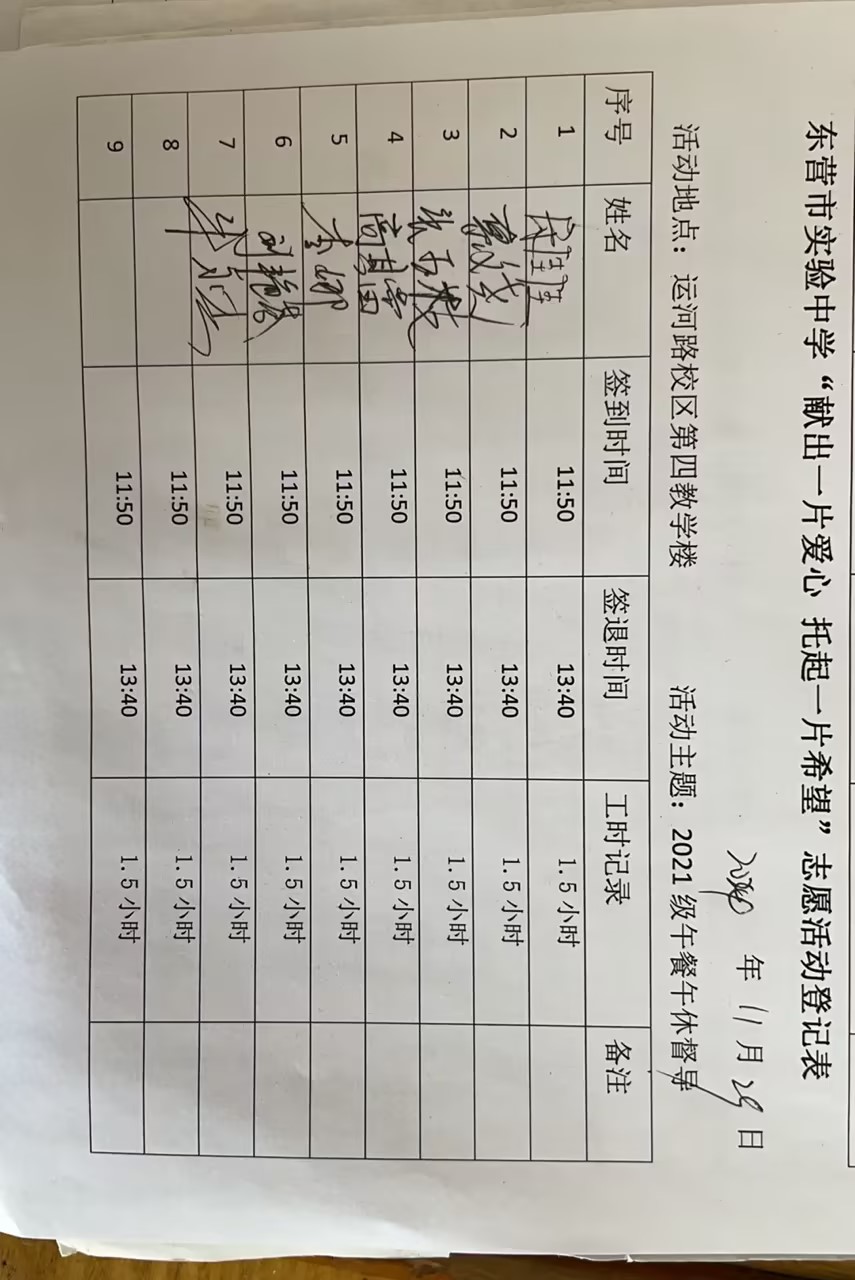 东营市实验中学“献出一片爱心 托起一片希望”志愿活动登记表
年 11 月 29 日
活动地点：运河路校区第四教学楼 活动主题：2021 级午餐午休督导
序号 姓名 签到时间 签退时间 工时记录 备注
1 11:50 13:40 1.5 小时
2 11:50 13:40 1.5 小时
3 11:50 13:40 1.5 小时
4 11:50 13:40 1.5 小时
5 李娜 11:50 13:40 1.5 小时
6 11:50 13:40 1.5 小时
7 11:50 13:40 1.5 小时
8 11:50 13:40 1.5 小时
9 11:50 13:40 1.5 小时